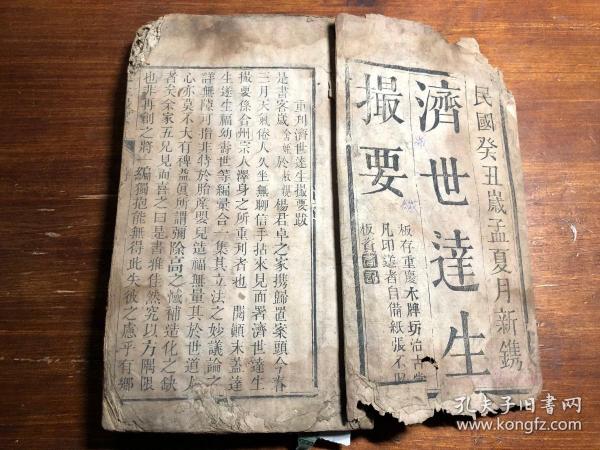 民國癸丑歲孟夏月新鐫
濟世達生
撮要
板存重慶木牌坊治古堂
凡印送者自備紙張不取
板資
重刊濟世達生撮要跋
是書客歲
楊君卓之家携歸置案頭今春
三月天氣倦人久坐無聊信手拈來見面署濟世達生
撮要係合州宗人澤身之所重刊者也閱顛末蓋達
生遂生福幼壽世等編彙合一集其立法之妙議論之
詳無陵可指非特於胎產嬰兒造福無量其於世道人
心亦莫不大有裨益眞所謂彌除高之憾補造化之缺
者矣余家五兄見而喜之曰是書雅佳然究以方隅限
也非再刱之將一編獨抱能無得此失彼之慮乎有鄉
孔夫子旧书网
www.kongfz.com